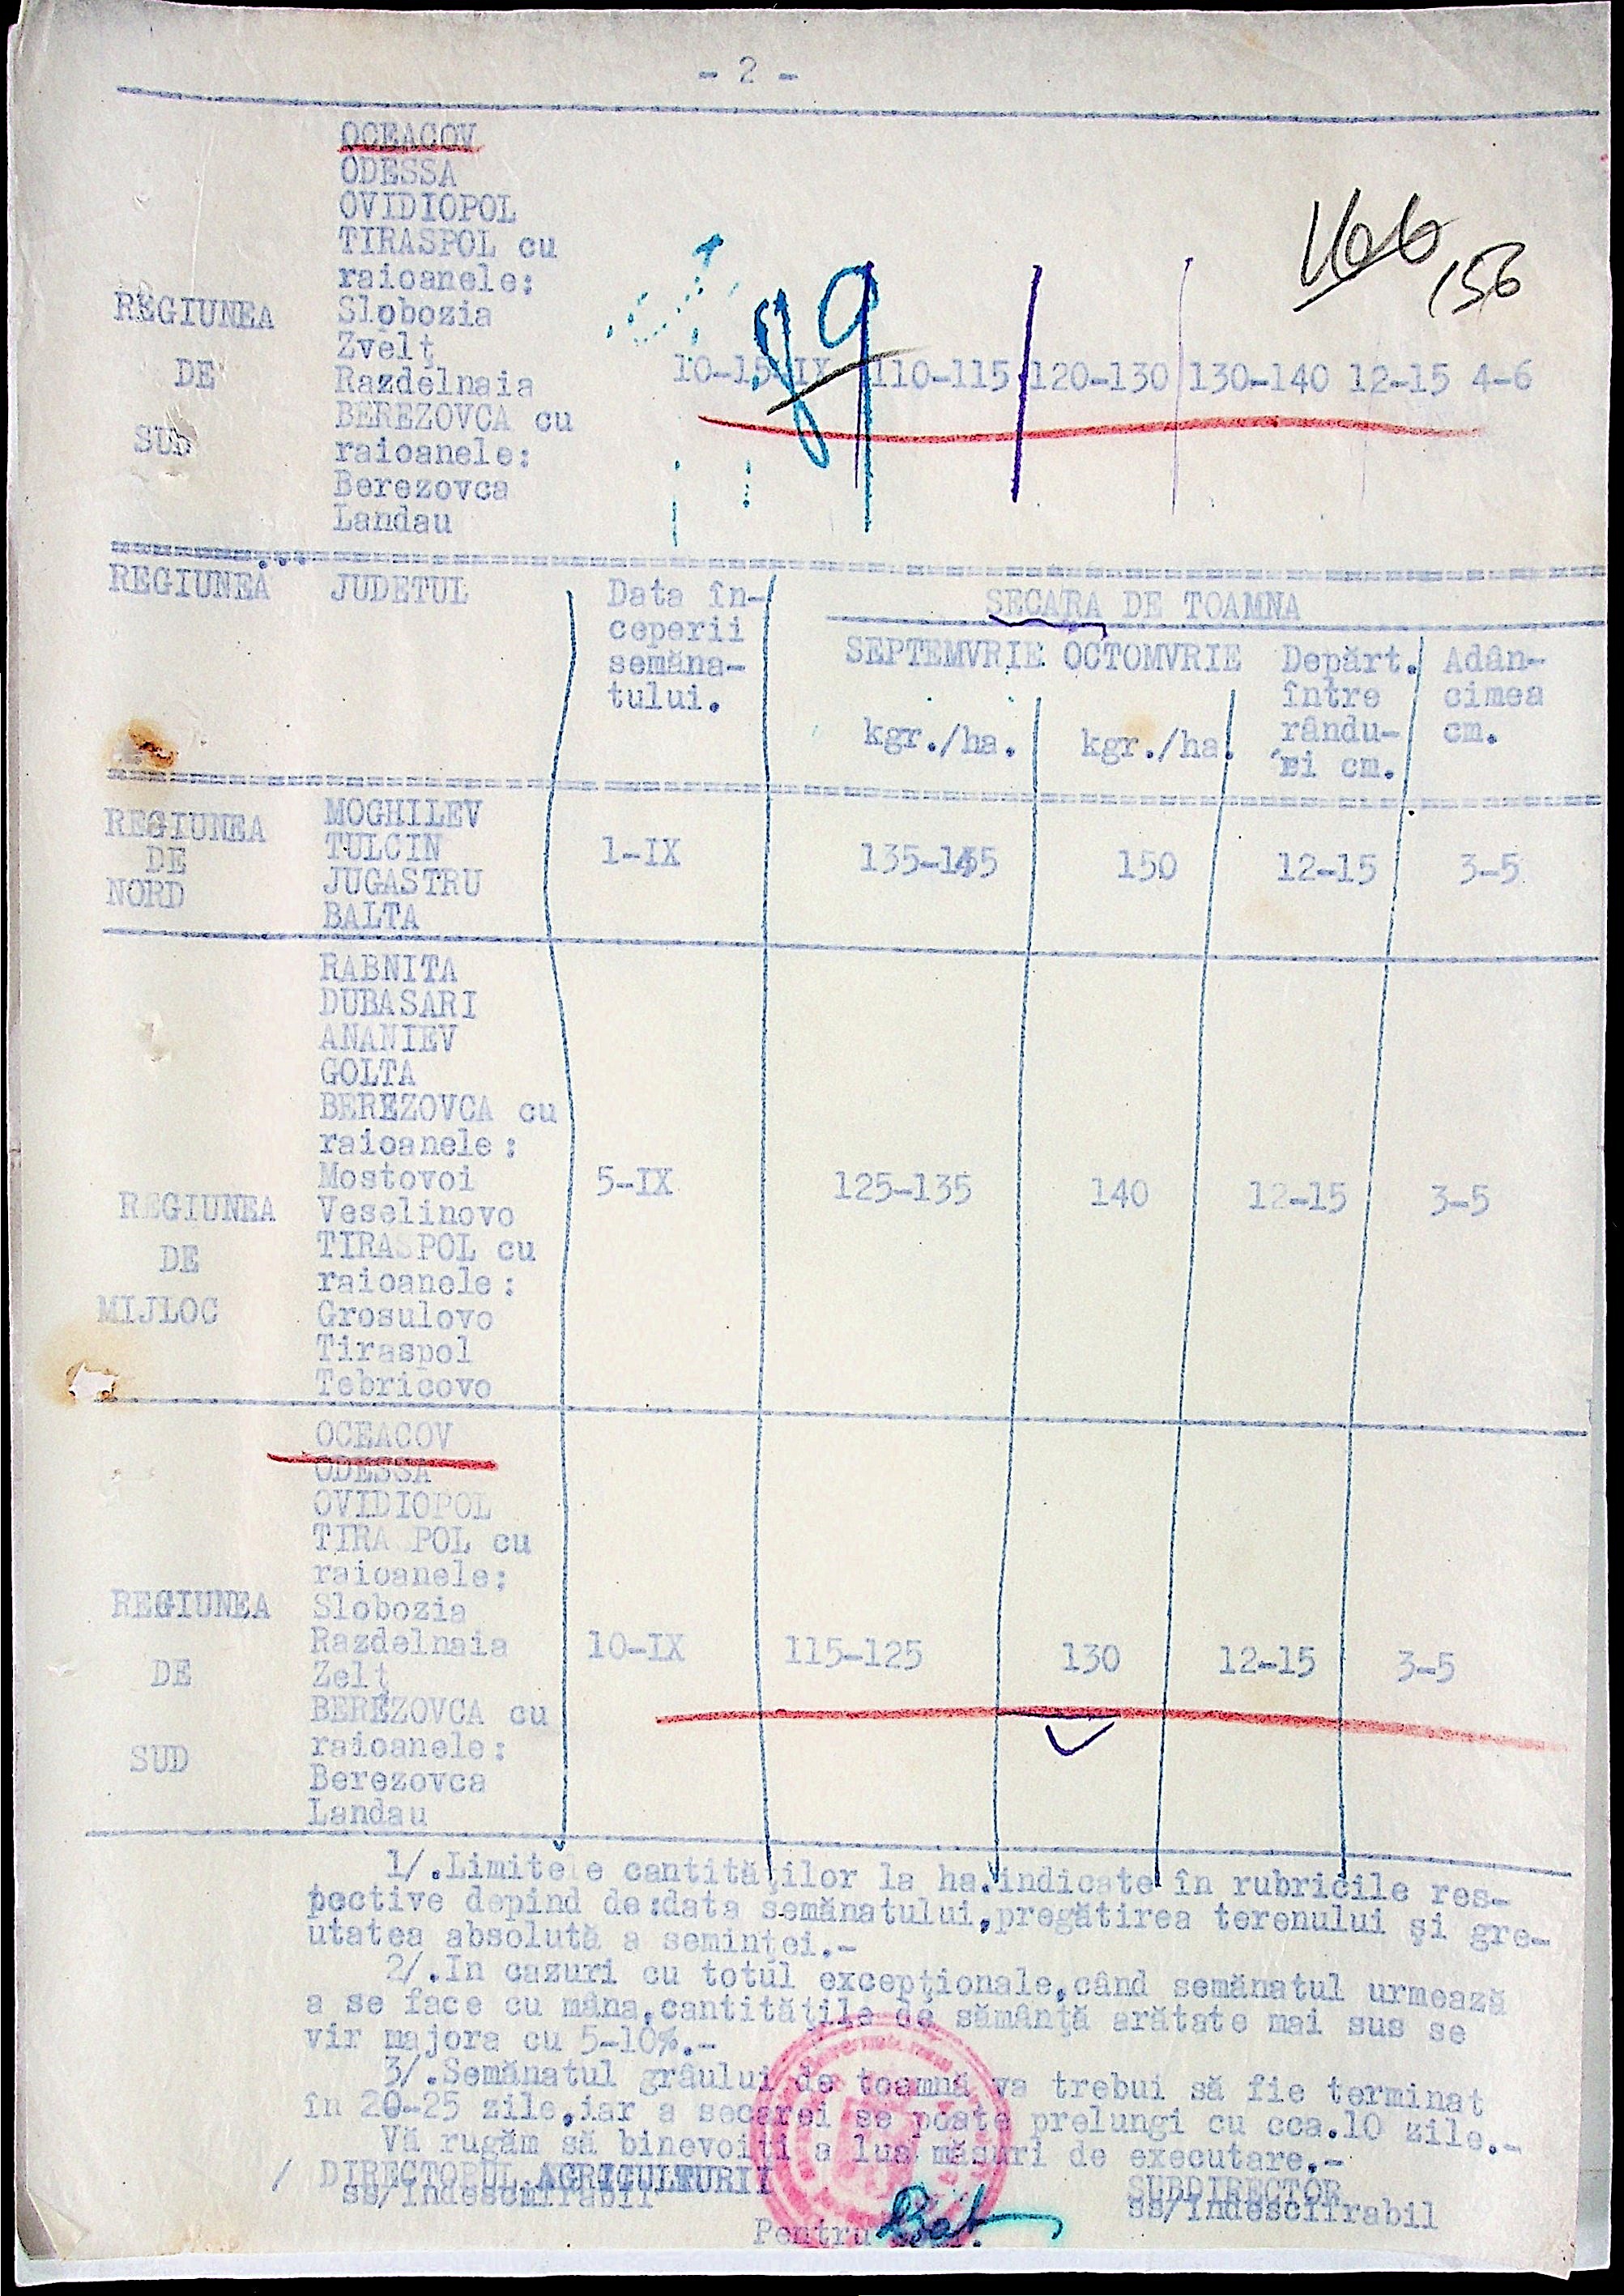 - 2 -
OCEACOV
ODESSA
OVIDIOPOL
TIRASPOL cu
raioanele:
REGIUNEA Slobozia
Zvelţ
DE Razdelnaia 10-15-IX 110-115 120-130 130-140 12-15 4-6
BEREZOVCA cu
SUD raioanele:
Berezovca
Landau
89
166
156
REGIUNEA JUDETUL Data în- SECARA DE TOAMNA
ceperii SEPTEMVRIE OCTOMVRIE Depărt. Adân-
semăna- între cimea
tului. kgr./ha. kgr./ha. rându- cm.
ri cm.
REGIUNEA MOGHILEV
DE TULCIN 1-IX 135-145 150 12-15 3-5
NORD JUGASTRU
BALTA
RABNITA
DUBASARI
ANANIEV
GOLTA
BEREZOVCA cu
raioanele:
Mostovoi 5-IX 125-135 140 12-15 3-5
REGIUNEA Veselinovo
DE TIRASPOL cu
raioanele:
MIJLOC Grosulovo
Tiraspol
Tebricovo
OCEACOV
ODESSA
OVIDIOPOL
TIRA POL cu
raioanele:
REGIUNEA Slobozia
Razdelnaia 10-IX 115-125 130 12-15 3-5
DE Zelţ
BEREZOVCA cu
SUD raioanele:
Berezovca
Landau
1/.Limitele cantităţilor la ha.indicate în rubricile res-
pective depind de:data semănatului,pregătirea terenului şi gre-
utatea absolută a seminţei.-
2/.In cazuri cu totul excepţionale,când semănatul urmează
a se face cu mâna,cantităţile de sămânţă arătate mai sus se
vir majora cu 5-10%.-
3/.Semănatul grâului de toamnă va trebui să fie terminat
în 20-25 zile,iar a secarei se poate prelungi cu cca.10 zile.-
Vă rugăm să binevoiţi a lua măsuri de executare.-
/ DIRECTORUL AGRICULTURII SUBDIRECTOR
ss/Indescifrabil ss/Indescifrabil
Pentru